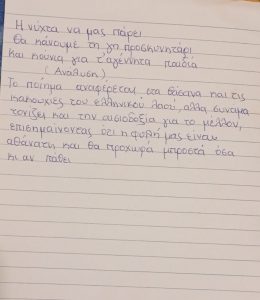 Η νύχτα να μας πάρει
Θα κάνουμε τη γη προσκυνητάρι
και κούνια για τ'αγέννητα παιδιά
(Ανάλυση)
Το ποίημα αναφέρεται στα βάσανα και τις
κακουχίες του ελληνικού λαού, αλλά συνάμα
τονίζει και την αισιοδοξία για το μέλλον,
επισημαίνοντας ότι η φυλή μας είναι
αθάνατη και θα προχωρά μπροστά όσα
κι αν πάθει